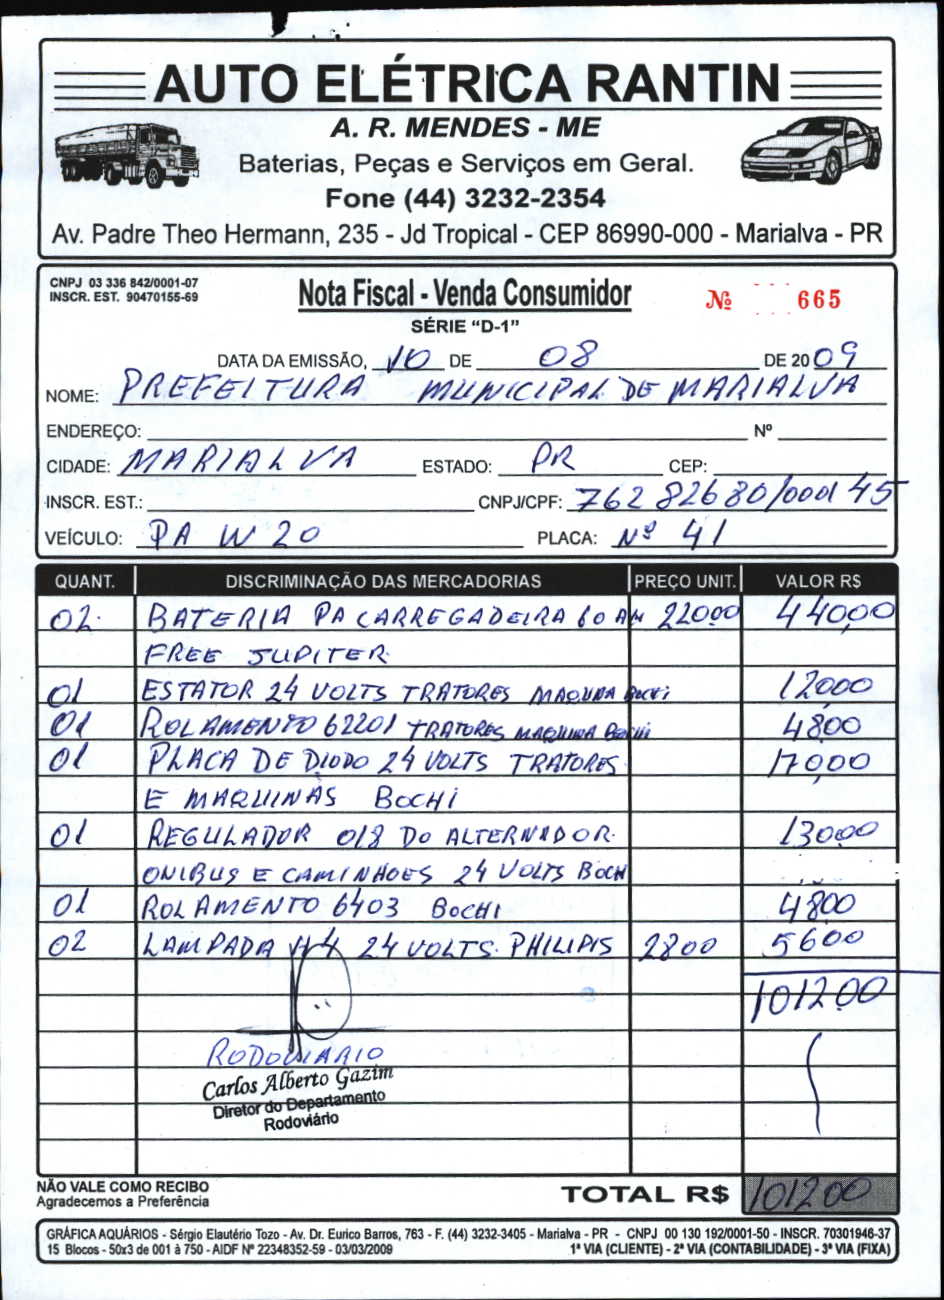 AUTO ELÉTRICA RANTIN
A. R. MENDES - ME
Baterias, Peças e Serviços em Geral.
Fone (44) 3232-2354
Av. Padre Theo Hermann, 235 - Jd Tropical - CEP 86990-000 - Marialva - PR
CNPJ 03 336 842/0001-07
INSCR. EST. 90470155-69
Nota Fiscal - Venda Consumidor
Nº 665
SÉRIE "D-1"
DATA DA EMISSÃO, 10 DE 08 DE 2009
NOME: PREFEITURA MUNICIPAL DE MARIALVA
ENDEREÇO: Nº
CIDADE: MARIALVA ESTADO: PR CEP:
INSCR. EST.: CNPJ/CPF: 76282680/0001 45
VEÍCULO: PA W 20 PLACA: Nº 41
QUANT. DISCRIMINAÇÃO DAS MERCADORIAS PREÇO UNIT. VALOR R$
02 BATERIA PA CARREGADEIRA 60 AM 22000 44000
FREE JUPITER
01 ESTATOR 24 VOLTS TRATORES MAQUINA BOCHI 12000
01 ROLAMENTO 62201 TRATORES MAQUINA BOCHI 4800
01 PLACA DE DIODO 24 VOLTS TRATORES 17000
E MAQUINAS BOCHI
01 REGULADOR 018 DO ALTERNADOR 13000
ONIBUS E CAMINHOES 24 VOLTS BOCH
01 ROLAMENTO 6403 BOCHI 4800
02 LAMPADA H4 24 VOLTS. PHILIPIS 2800 5600
101200
RODOVIARIO
Carlos Alberto Gazim
Diretor do Departamento
Rodoviário
NÃO VALE COMO RECIBO
Agradecemos a Preferência
TOTAL R$ 101200
GRÁFICA AQUÁRIOS - Sérgio Elautério Tozo - Av. Dr. Eurico Barros, 763 - F. (44) 3232-3405 - Marialva - PR - CNPJ 00 130 192/0001-50 - INSCR. 70301946-37
15 Blocos - 50x3 de 001 à 750 - AIDF Nº 22348352-59 - 03/03/2009 1ª VIA (CLIENTE) - 2ª VIA (CONTABILIDADE) - 3ª VIA (FIXA)